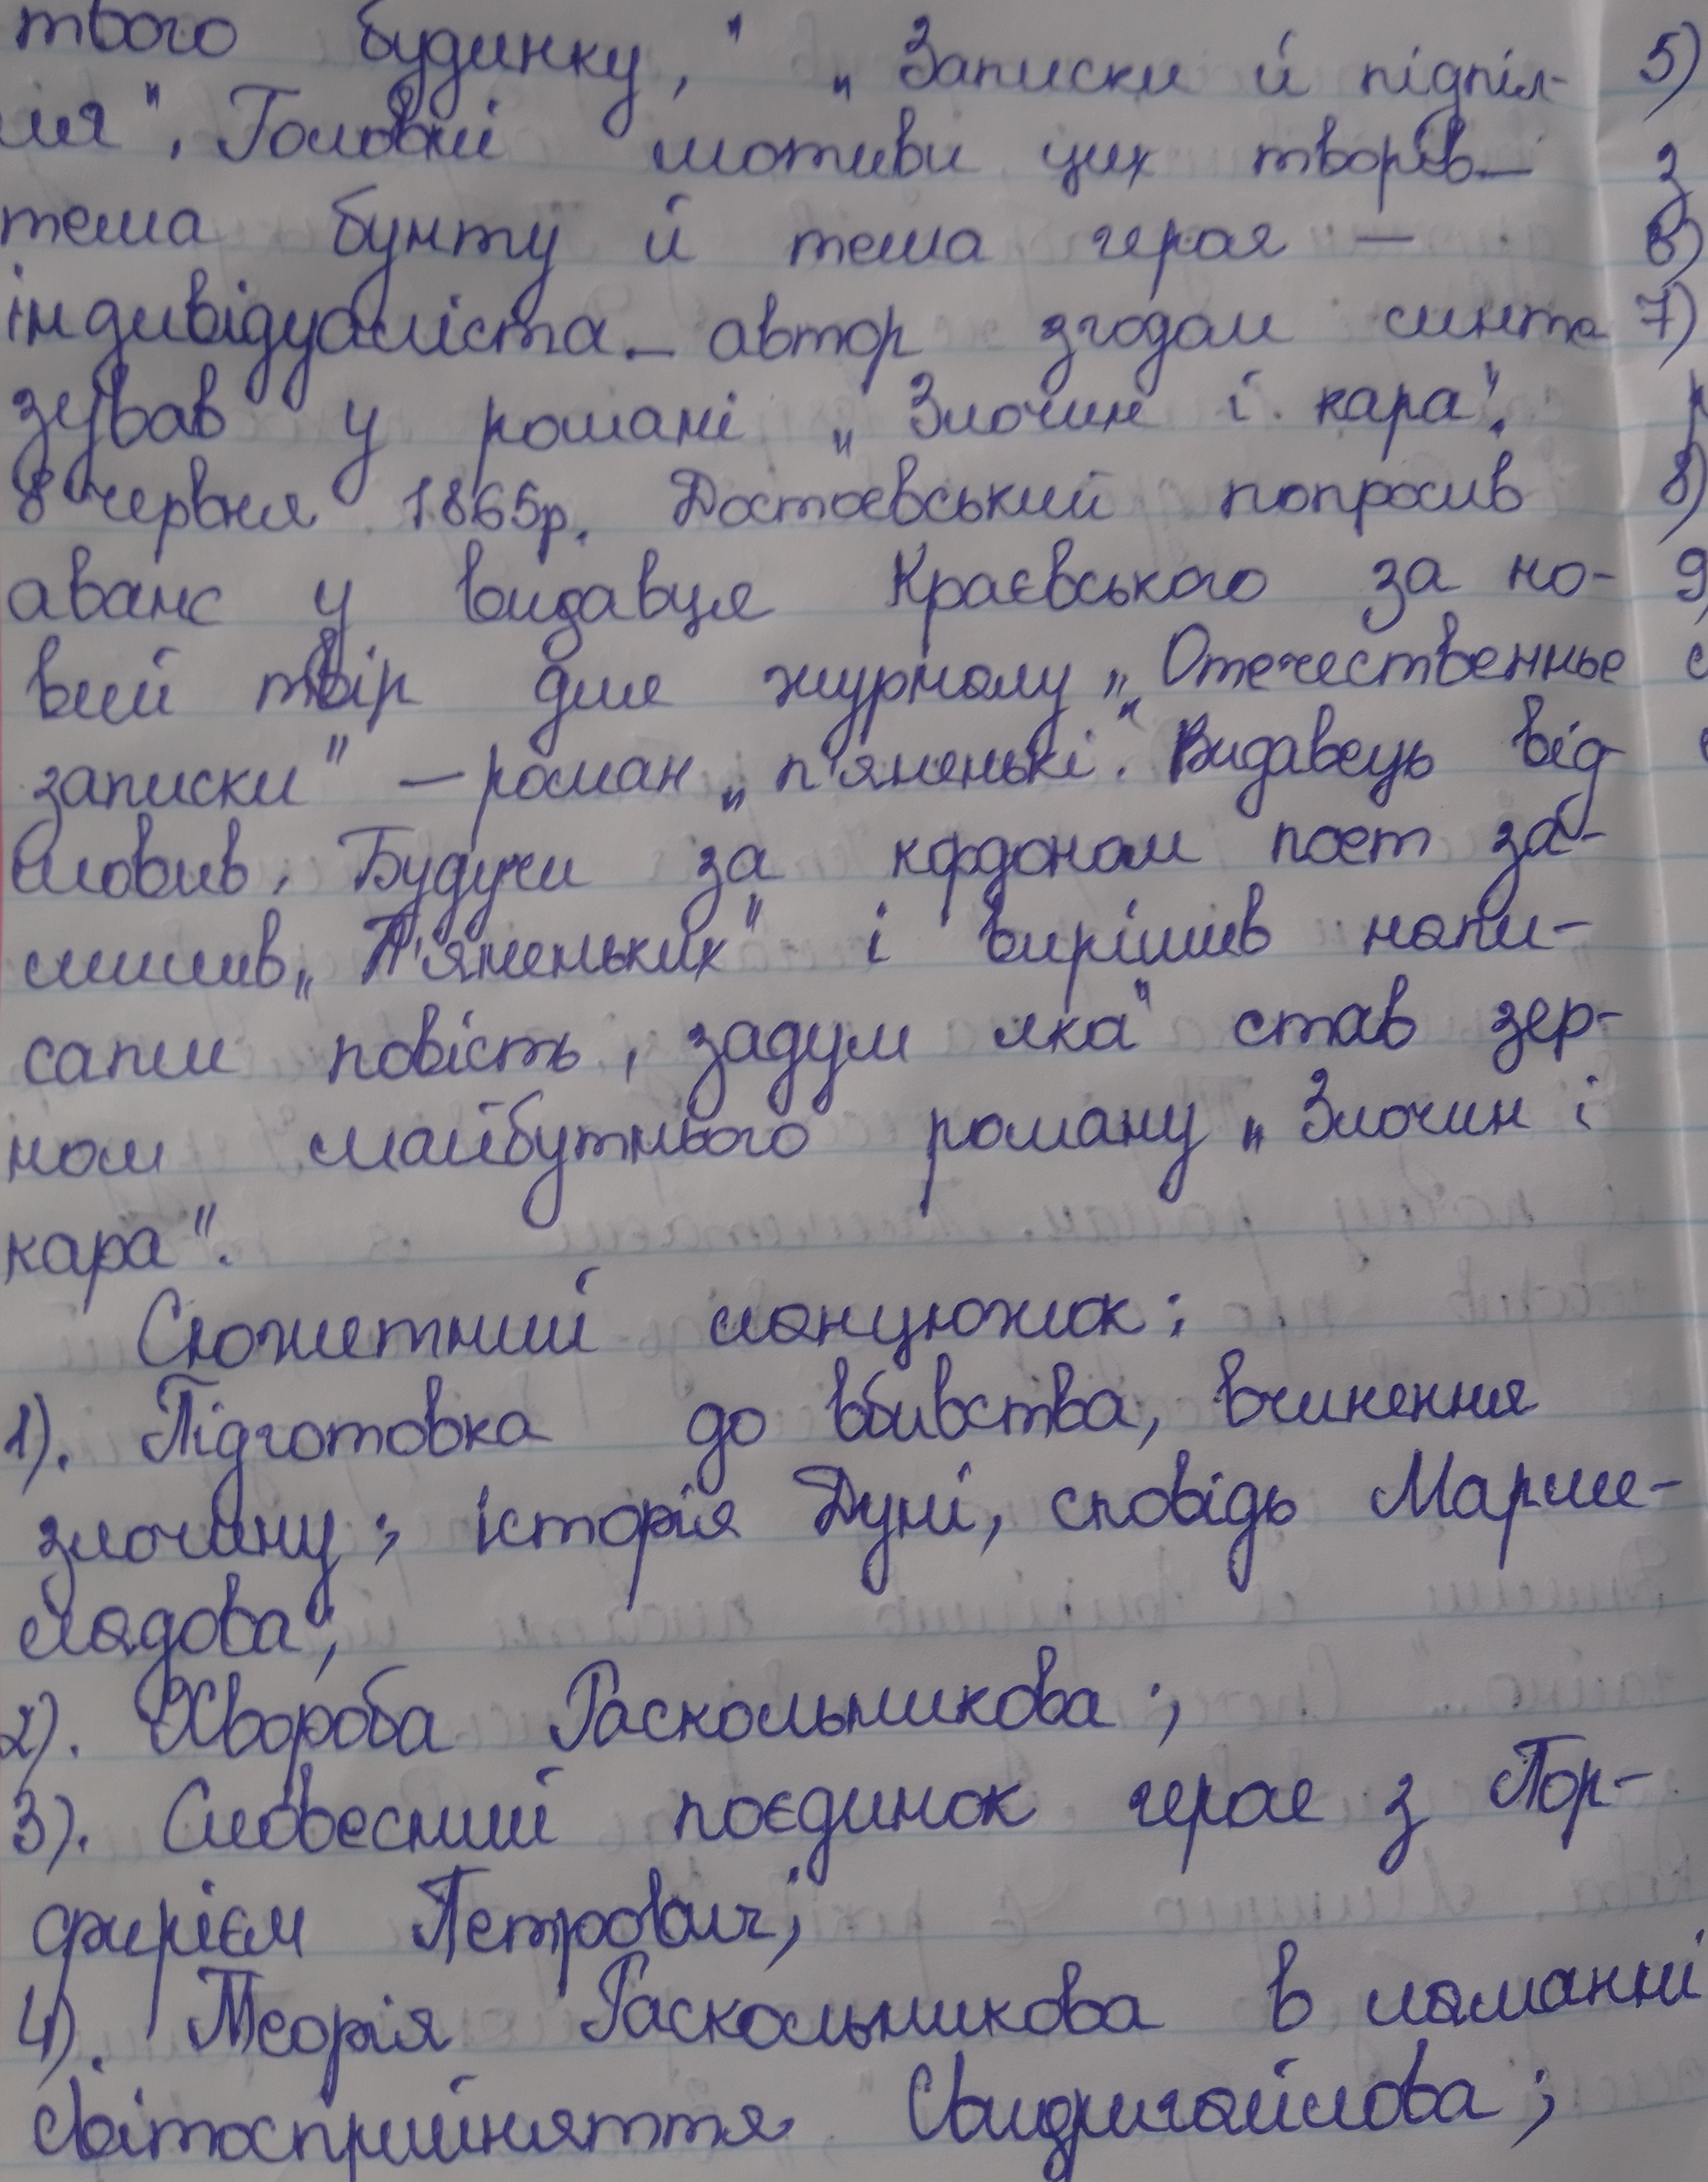 твого будинку," „Записки й підпіл- 5)
ля". Головні мотиви цих творів — з
тема бунту й тема героя — 6)
індивідуаліста — автор згодом синте 7)
зував у романі „Злочин і кара". р
8 червня 1865р. Достоєвський попросив 8)
аванс у видавця Краєвського за но- 9)
вий твір для журналу „Отечественные с
записки" — роман „п'яненькі". Видавець від
мовив. Будучи за кордоном поет за-
лишив „П'яненьких" і вирішив напи-
сати повість, задум яка став зер-
ном майбутнього роману „Злочин і
кара".
Сюжетний ланцюжок:
1). Підготовка до вбивства, вчинення
злочину; історія Дуні, сповідь Марме-
ладова;
2). Хвороба Раскольникова;
3). Словесний поєдинок героя з Пор-
фирієм Петрович;
4). Теорія Раскольникова в ламанні
світосприйняття Свидригайлова;